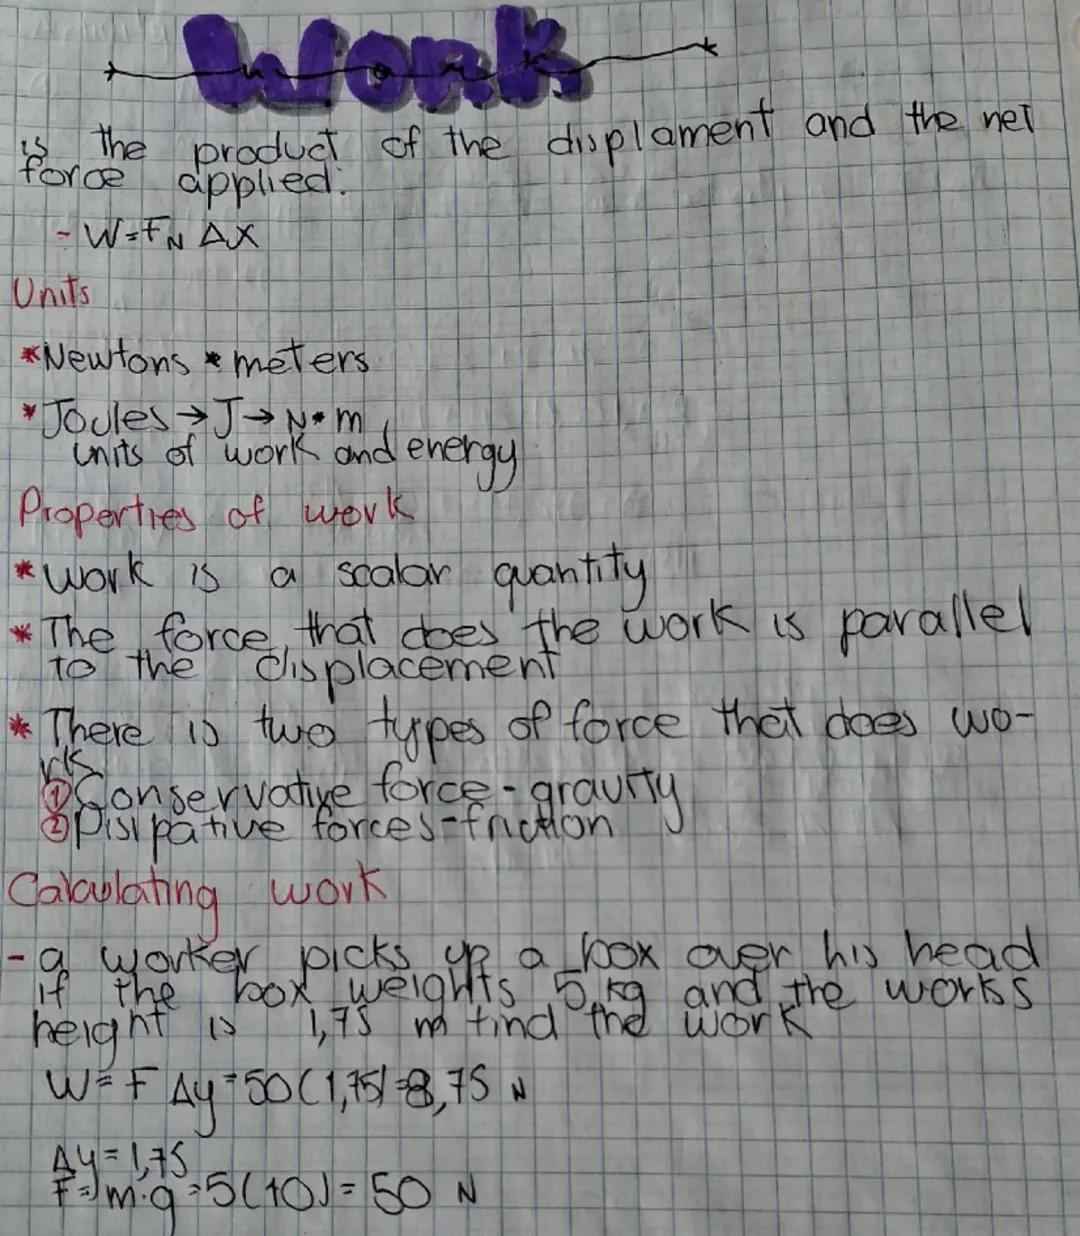 Work
is the product of the displament and the net
force applied:
- W=FN ΔX
Units
*Newtons * meters
*Joules → J → N•m
units of work and energy
Properties of work
*Work is a scalar quantity
*The force that does the work is parallel
to the displacement
*There is two types of force that does wo-
rk
① Conservative force - gravity
② Disipative forces - friction
Calculating work
- a worker picks up a box over his head
if the box weights 5 kg and the works
height is 1,75 m find the work
W= F Δy = 50(1,75)=8,75 N
Δy = 1,75
F= m•g = 5(10) = 50 N